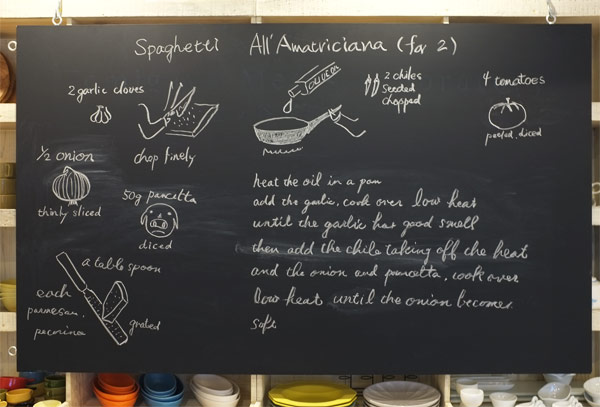 Spaghetti All'Amatriciana (for 2)
2 garlic cloves
chop finely
2 chiles
Seeded
chopped
4 tomatoes
peeled, diced
1/2 onion
thinly sliced
50g pancetta
diced
a table spoon
each
parmesan,
pecorino
grated
heat the oil in a pan
add the garlic, cook over low heat
until the garlic has good smell
then add the chile taking off the heat
and the onion and pancetta, cook over
low heat until the onion becomes
soft